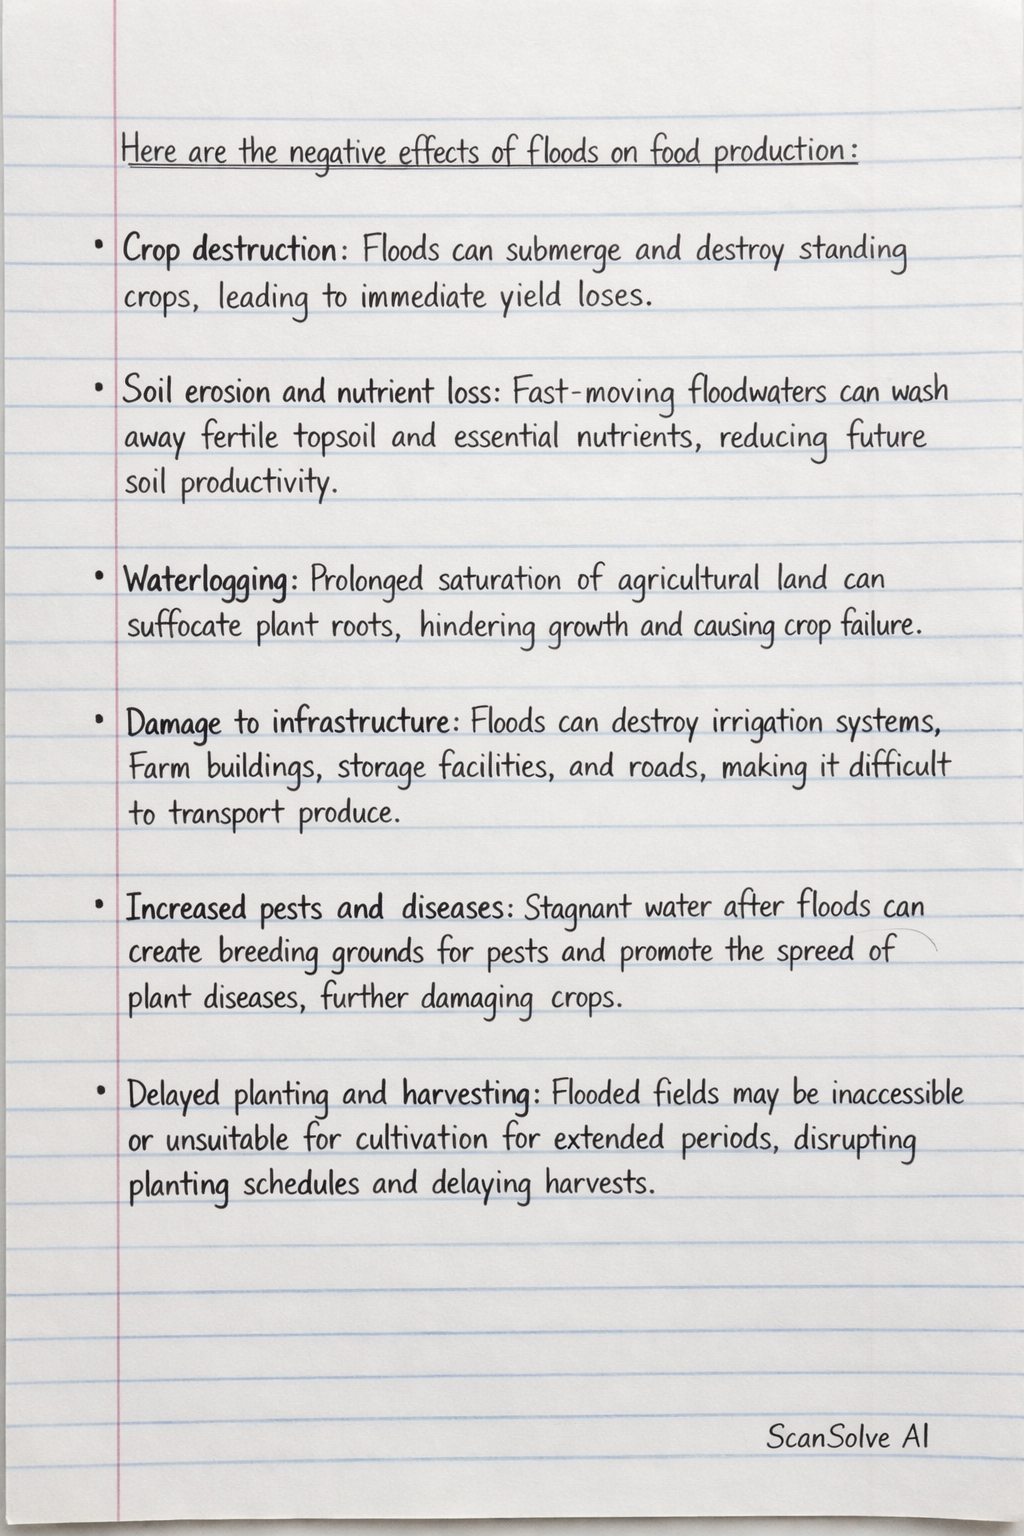 Here are the negative effects of floods on food production:
• Crop destruction: Floods can submerge and destroy standing
crops, leading to immediate yield loses.
• Soil erosion and nutrient loss: Fast-moving floodwaters can wash
away fertile topsoil and essential nutrients, reducing future
soil productivity.
• Waterlogging: Prolonged saturation of agricultural land can
suffocate plant roots, hindering growth and causing crop failure.
• Damage to infrastructure: Floods can destroy irrigation systems,
Farm buildings, storage facilities, and roads, making it difficult
to transport produce.
• Increased pests and diseases: Stagnant water after floods can
create breeding grounds for pests and promote the spreed of
plant diseases, further damaging crops.
• Delayed planting and harvesting: Flooded fields may be inaccessible
or unsuitable for cultivation for extended periods, disrupting
planting schedules and delaying harvests.
ScanSolve AI